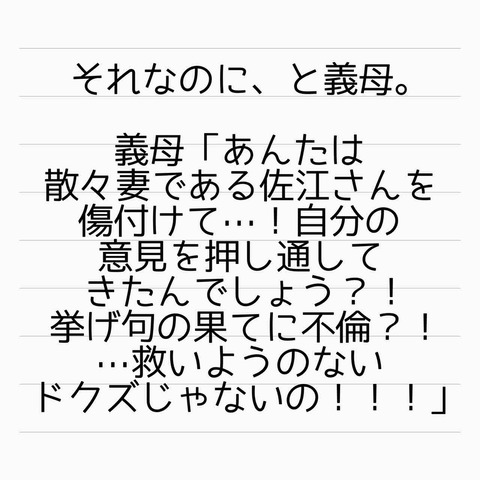 それなのに、と義母。
義母「あんたは
散々妻である佐江さんを
傷付けて…！自分の
意見を押し通して
きたんでしょう？！
挙げ句の果てに不倫？！
…救いようのない
ドクズじゃないの！！！」